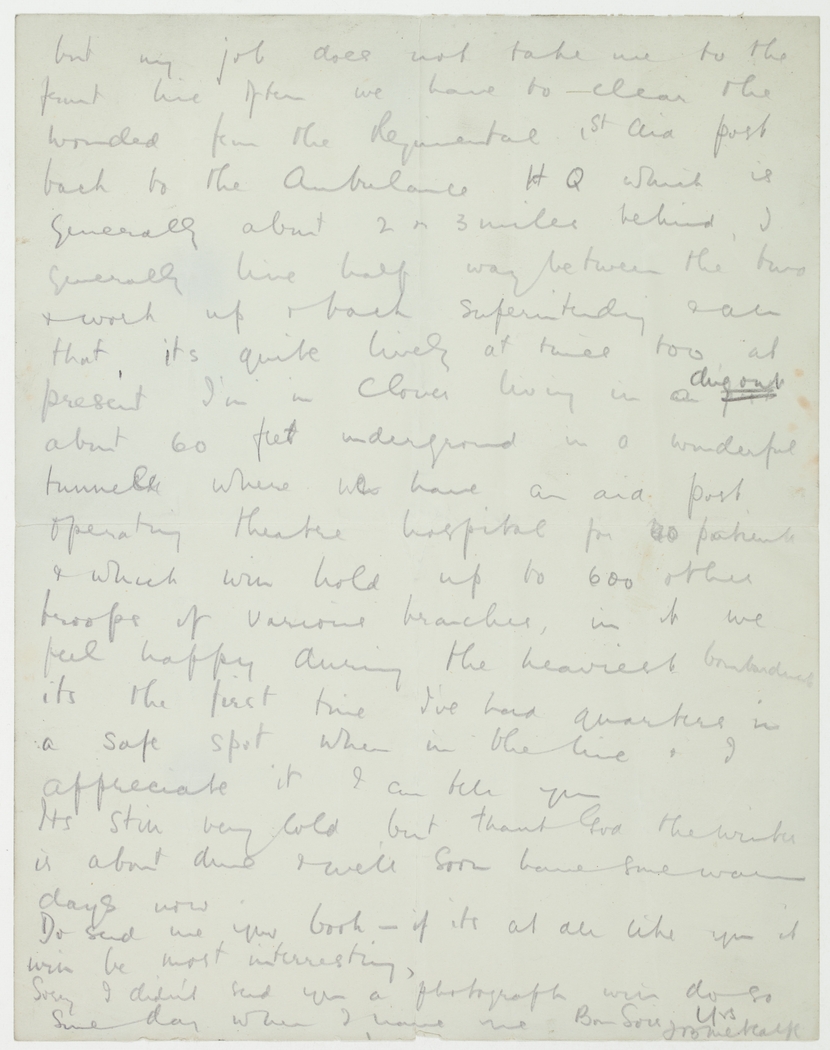 but my job does not take me to the
front line often we have to - clear the
wounded from the Regimental 1st Aid post
back to the Ambulance H Q which is
generally about 2 or 3 miles behind, I
generally live half way between the two
& work up & back superintending & all
that, its quite lively at times too at
present I'm in clover living in a dugout
about 60 feet underground in a wonderful
tunnel where we have an aid post
operating theatre hospital for 40 patients
& which will hold up to 600 other
troops of various branches, in it we
feel happy during the heaviest bombardment
its the first time I've had quarters in
a safe spot when in the line & I
appreciate it I can tell you
Its still very cold but thank God the winter
is about done & we'll soon have some warm
days now.
Do send me your book - if its at all like you it
will be most interesting,
Sorry I didn't send you a photograph will do so
some day when I have one. Bon Soir Yrs
Metcalfe